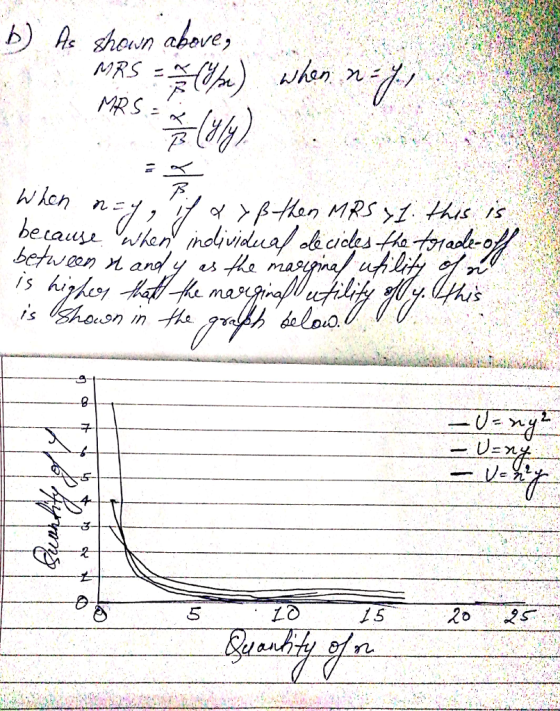 b) As shown above,
MRS = α/β (y/x) when x = y,
MRS = α/β (y/y)
= α/β
when x = y, if α > β then MRS > 1. this is
because when individual decides the trade-off
between x and y as the marginal utility of x
is higher that the marginal utility of y. this
is shown in the graph below.
9
8
7
6
5
4
3
2
1
0
Quantity of y
— U = xy²
— U = xy
— U = x²y
0 5 10 15 20 25
Quantity of x